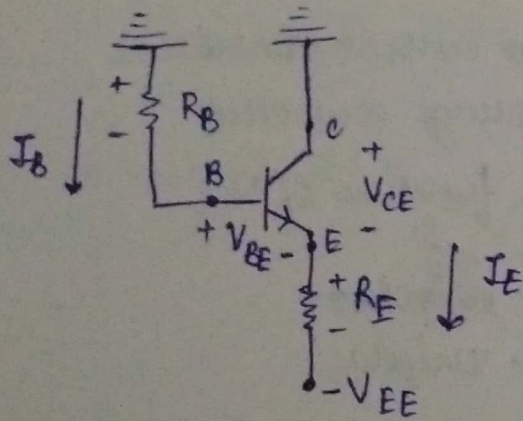 +
R_B
-
I_B
C
B
+
V_CE
-
+ V_BE -
E
+
R_E
-
I_E
-V_EE